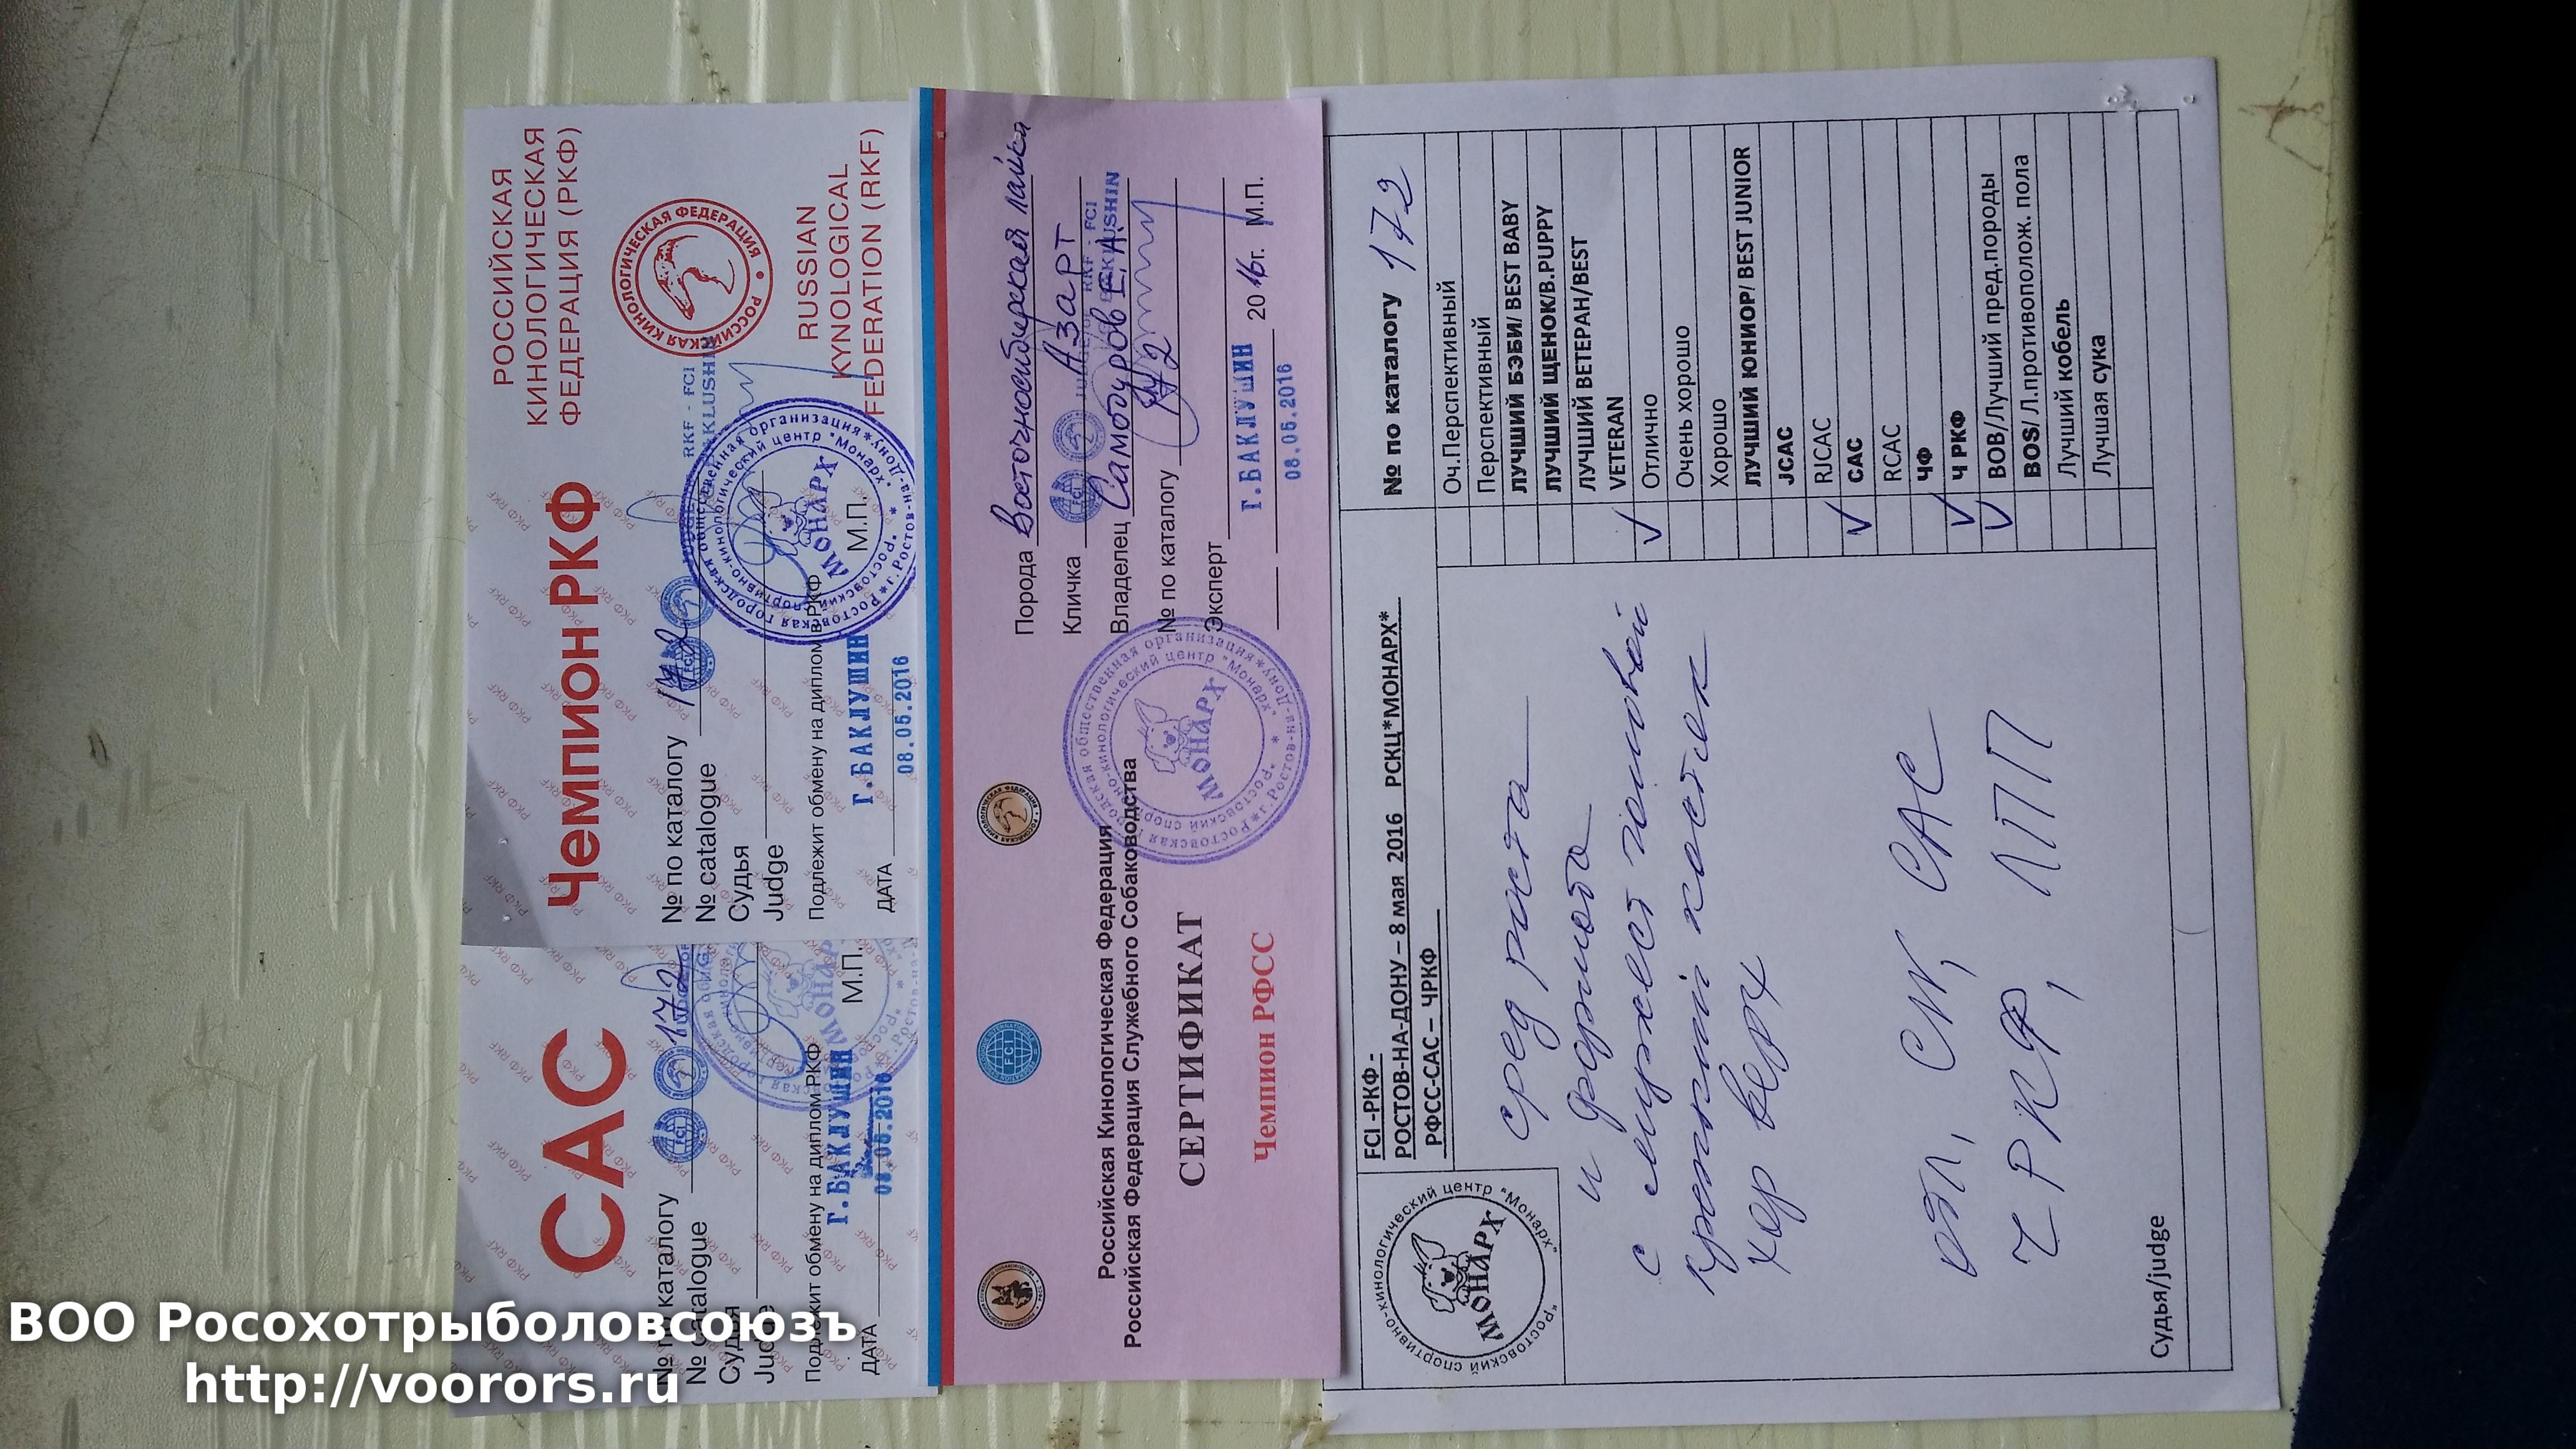 CAC
№ по каталогу 172
№ catalogue
Судья
Judge
Подлежит обмену на диплом РКФ
Г.БАКЛУШИН
М.П.
ДАТА 08.05.2016
Чемпион РКФ
РОССИЙСКАЯ
КИНОЛОГИЧЕСКАЯ
ФЕДЕРАЦИЯ (РКФ)
РОССИЙСКАЯ КИНОЛОГИЧЕСКАЯ ФЕДЕРАЦИЯ
RUSSIAN
KYNOLOGICAL
FEDERATION (RKF)
№ по каталогу 172
№ catalogue
RKF - FCI
Судья
Judge
Подлежит обмену на диплом в РКФ
Г.БАКЛУШИН
М.П.
ДАТА 08.05.2016
МОНАРХ
Российская Кинологическая Федерация
Российская Федерация Служебного Собаководства
СЕРТИФИКАТ
Чемпион РФСС
FCI
Порода Восточносибирская лайка
Кличка Азарт
RKF - FCI
Владелец Самобуров Е.А.
№ по каталогу 172
Эксперт Г.БАКЛУШИН
2016г. М.П.
08.05.2016
МОНАРХ
"Ростовский спортивно-кинологический центр "Монарх"
МОНАРХ
FCI -РКФ -
РОСТОВ-НА-ДОНУ – 8 мая 2016 РСКЦ*МОНАРХ*
РФСС-САС – ЧРКФ
№ по каталогу 172
Оч.Перспективный
Перспективный
ЛУЧШИЙ БЭБИ/ BEST BABY
ЛУЧШИЙ ЩЕНОК/B.PUPPY
ЛУЧШИЙ ВЕТЕРАН/BEST
VETERAN
√ Отлично
Очень хорошо
Хорошо
ЛУЧШИЙ ЮНИОР/ BEST JUNIOR
JCAC
RJCAC
√ CAC
RCAC
ЧФ
√ Ч РКФ
√ BOB/Лучший пред.породы
BOS/ Л.противополож. пола
Лучший кобель
Лучшая сука
сред роста
и формата
с мужест головой
крепкий костяк
хор верх
отл, CW, CAC
Ч РКФ, ЛПП
Судья/judge
ВОО Росохотрыболовсоюзъ
http://voorors.ru